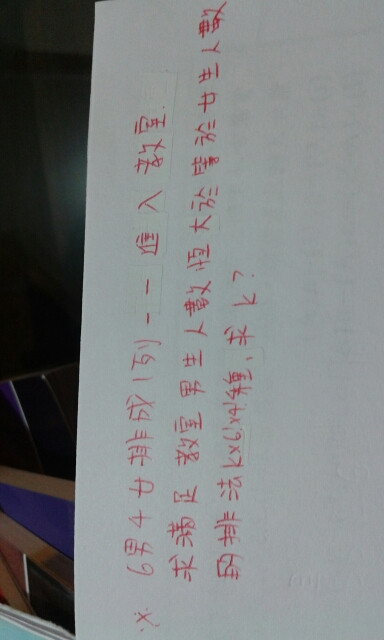 ※. 6男4女排成1列一一進入教室.
求滿足教室男生人數恆大於等於女生人數
的排法k×6!×4!種、求k?